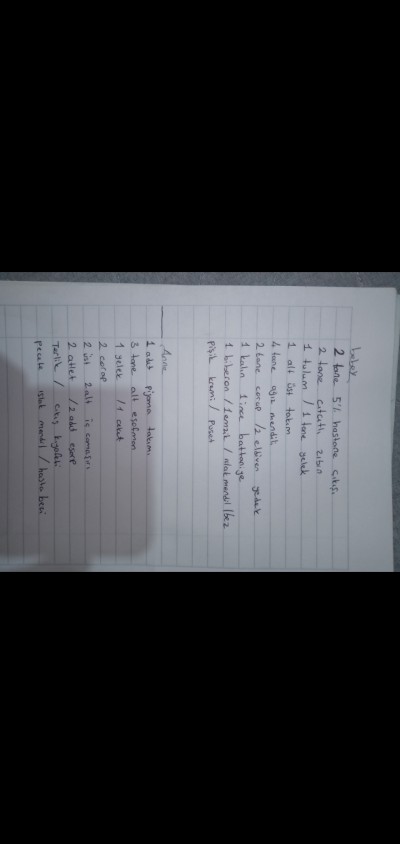 bebek
2 tane 5'li hastane çıkışı
2 tane çıtçıtlı zıbın
1 tulum / 1 tane yelek
1 alt üst takım
4 tane ağız mendili
2 tane çorap / 2 eldiven yedek
1 kalın 1 ince battaniye
1 biberon / 1 emzik / ıslak mendil / bez
pişik kremi / puset
Anne
1 adet pijama takımı
3 tane alt eşofman
1 yelek / 1 ceket
2 çorap
2 üst 2 alt iç çamaşırı
2 atlet / 2 adet eşarp
Terlik / çıkış kıyafeti
peçete ıslak mendil / hasta bezi